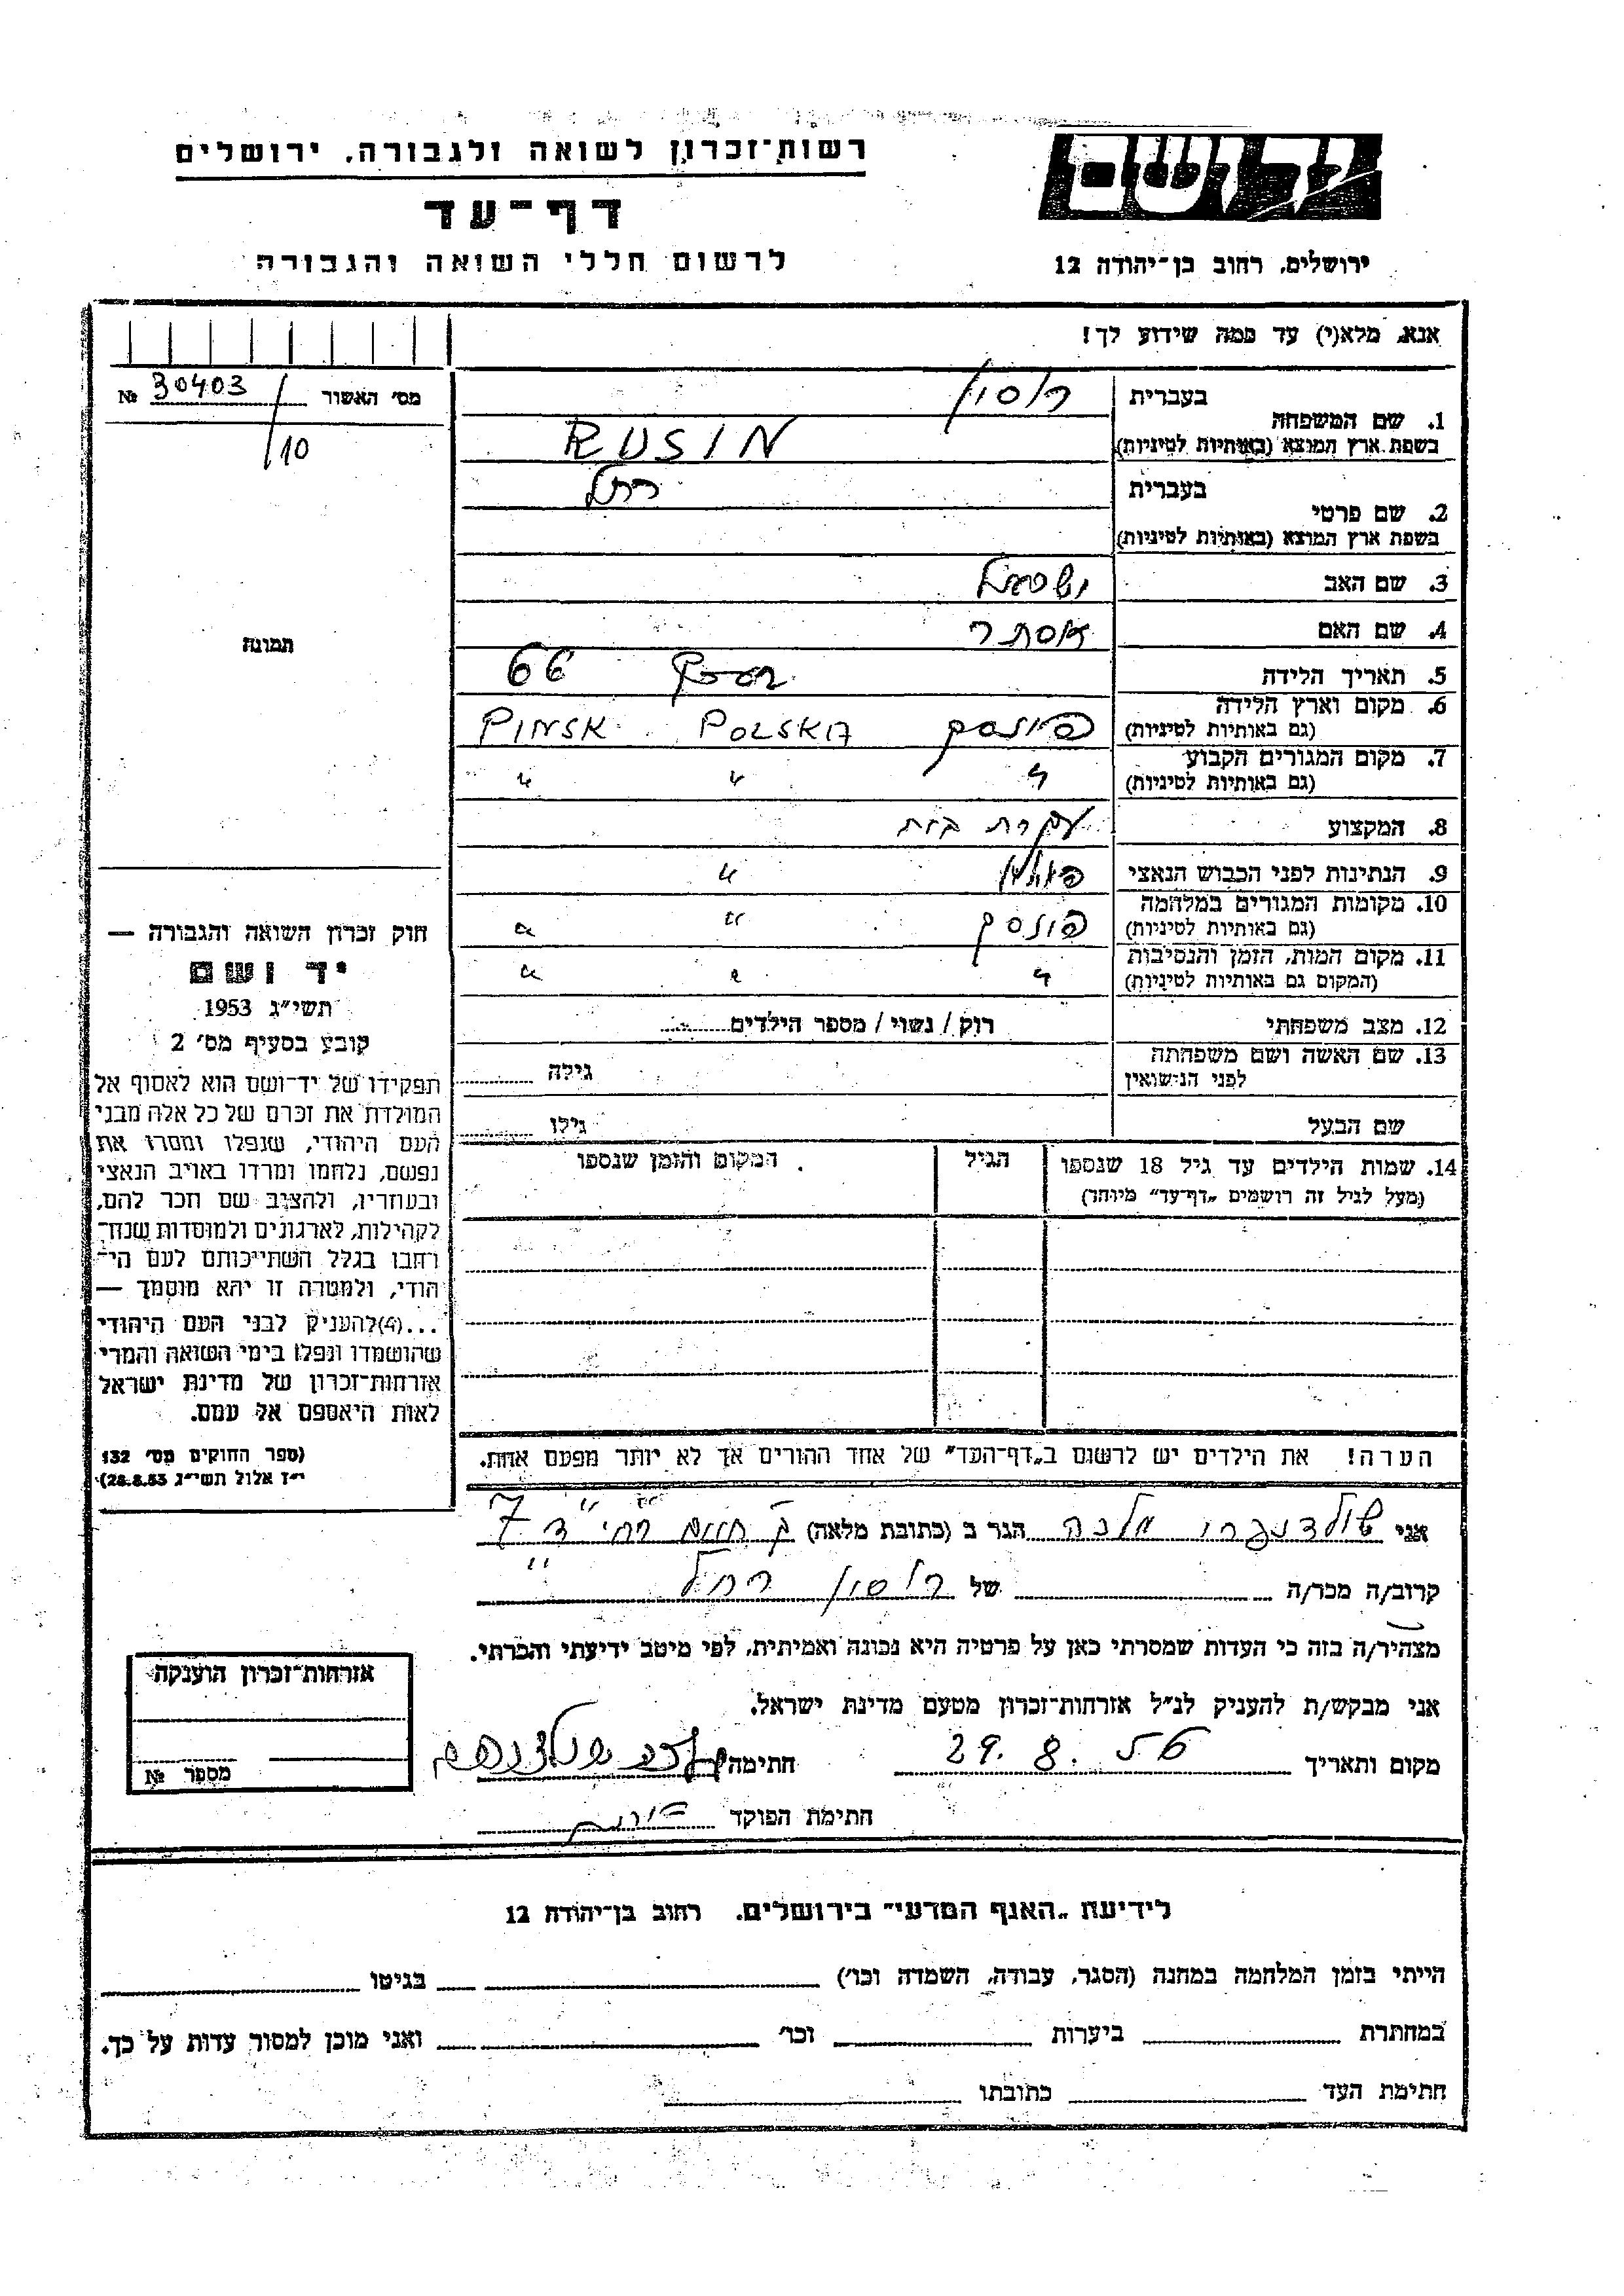 רשות־זכרון לשואה ולגבורה, ירושלים
יד ושם
דף־עד
לרשום חללי השואה והגבורה
ירושלים, רחוב בן־יהודה 12
אנא, מלא(י) עד כמה שידוע לך!
מס׳ האשור 30403 №
/10
1. שם המשפחה
בעברית רוסין
בשפת ארץ המוצא (באותיות לטיניות) RUSIN
2. שם פרטי
בעברית רחל
בשפת ארץ המוצא (באותיות לטיניות)
3. שם האב ישראל
4. שם האם אסתר
5. תאריך הלידה 66
6. מקום וארץ הלידה
(גם באותיות לטיניות) פינסק POLSKA PINSK
7. מקום המגורים הקבוע
(גם באותיות לטיניות) " " "
8. המקצוע עקרת בית
9. הנתינות לפני הכבוש הנאצי פולין "
10. מקומות המגורים במלחמה
(גם באותיות לטיניות) פינסק " "
11. מקום המות, הזמן והנסיבות
(המקום גם באותיות לטיניות) " " "
12. מצב משפחתי רוק / נשוי / מספר הילדים
13. שם האשה ושם משפחתה
לפני הנישואין גילה
שם הבעל גילו
14. שמות הילדים עד גיל 18 שנספו
(מעל לגיל זה רושמים „דף־עד״ מיוחד)
הגיל
המקום והזמן שנספו
הערה! את הילדים יש לרשום ב„דף־העד״ של אחד ההורים אך לא יותר מפעם אחת.
תמונה
חוק זכרון השואה והגבורה —
יד ושם
תשי״ג 1953
קובע בסעיף מס׳ 2
תפקידו של יד־ושם הוא לאסוף אל
המולדת את זכרם של כל אלה מבני
העם היהודי, שנפלו ומסרו את
נפשם, נלחמו ומרדו באויב הנאצי
ובעוזריו, ולהציב שם וזכר להם,
לקהילות, לארגונים ולמוסדות שנח־
רבו בגלל השתייכותם לעם הי־
הודי, ולמטרה זו יהא מוסמך —
...(4) להעניק לבני העם היהודי
שהושמדו ונפלו בימי השואה והמרי
אזרחות־זכרון של מדינת ישראל
לאות היאספם אל עמם.
(ספר החוקים מס׳ 132
י״ז אלול תשי״ג 28.8.53)
אני מלכה הגר ב (כתובת מלאה) ק חיים 7
קרוב/ה מכר/ה של רוסין רחל
מצהיר/ה בזה כי העדות שמסרתי כאן על פרטיה היא נכונה ואמיתית, לפי מיטב ידיעתי והכרתי.
אני מבקש/ת להעניק לנ״ל אזרחות־זכרון מטעם מדינת ישראל.
מקום ותאריך 29. 8. 56 חתימה
חתימת הפוקד
אזרחות־זכרון הוענקה
מספר №
לידיעת „האגף המדעי״ בירושלים, רחוב בן־יהודה 12
הייתי בזמן המלחמה במחנה (הסגר, עבודה, השמדה וכו׳) בגיטו
במחתרת ביערות וכו׳ ואני מוכן למסור עדות על כך.
חתימת העד כתובתו